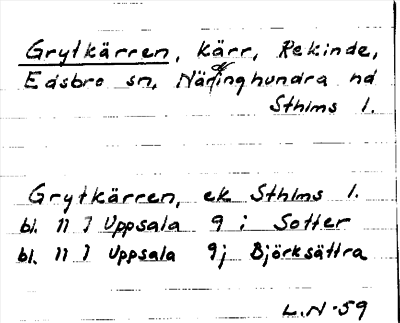 Grytkärren, kärr, Rekinde,
Edsbro sn, Närdinghundra hd
Sthlms l.
Grytkärren, ek Sthlms l.
bl. 11 I Uppsala 9 i Sotter
bl. 11 I Uppsala 9j Björksättra
L.N -59